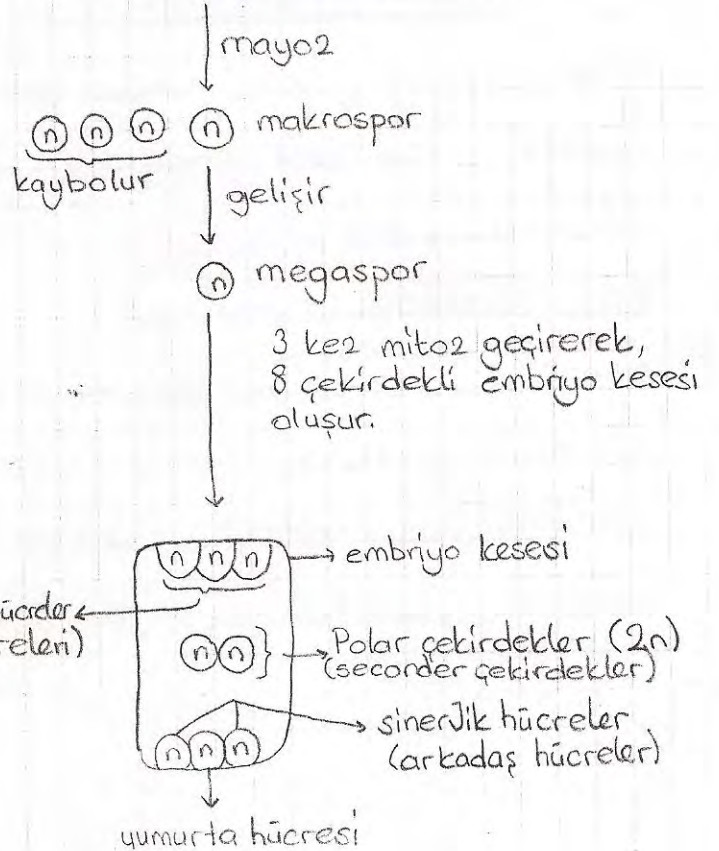 mayoz
n n n n makrospor
kaybolur
gelişir
n megaspor
3 kez mitoz geçirerek,
8 çekirdekli embriyo kesesi
oluşur.
n n n embriyo kesesi
n n Polar çekirdekler (2n)
(seconder çekirdekler)
sinerjik hücreler
n n n (arkadaş hücreler)
yumurta hücresi